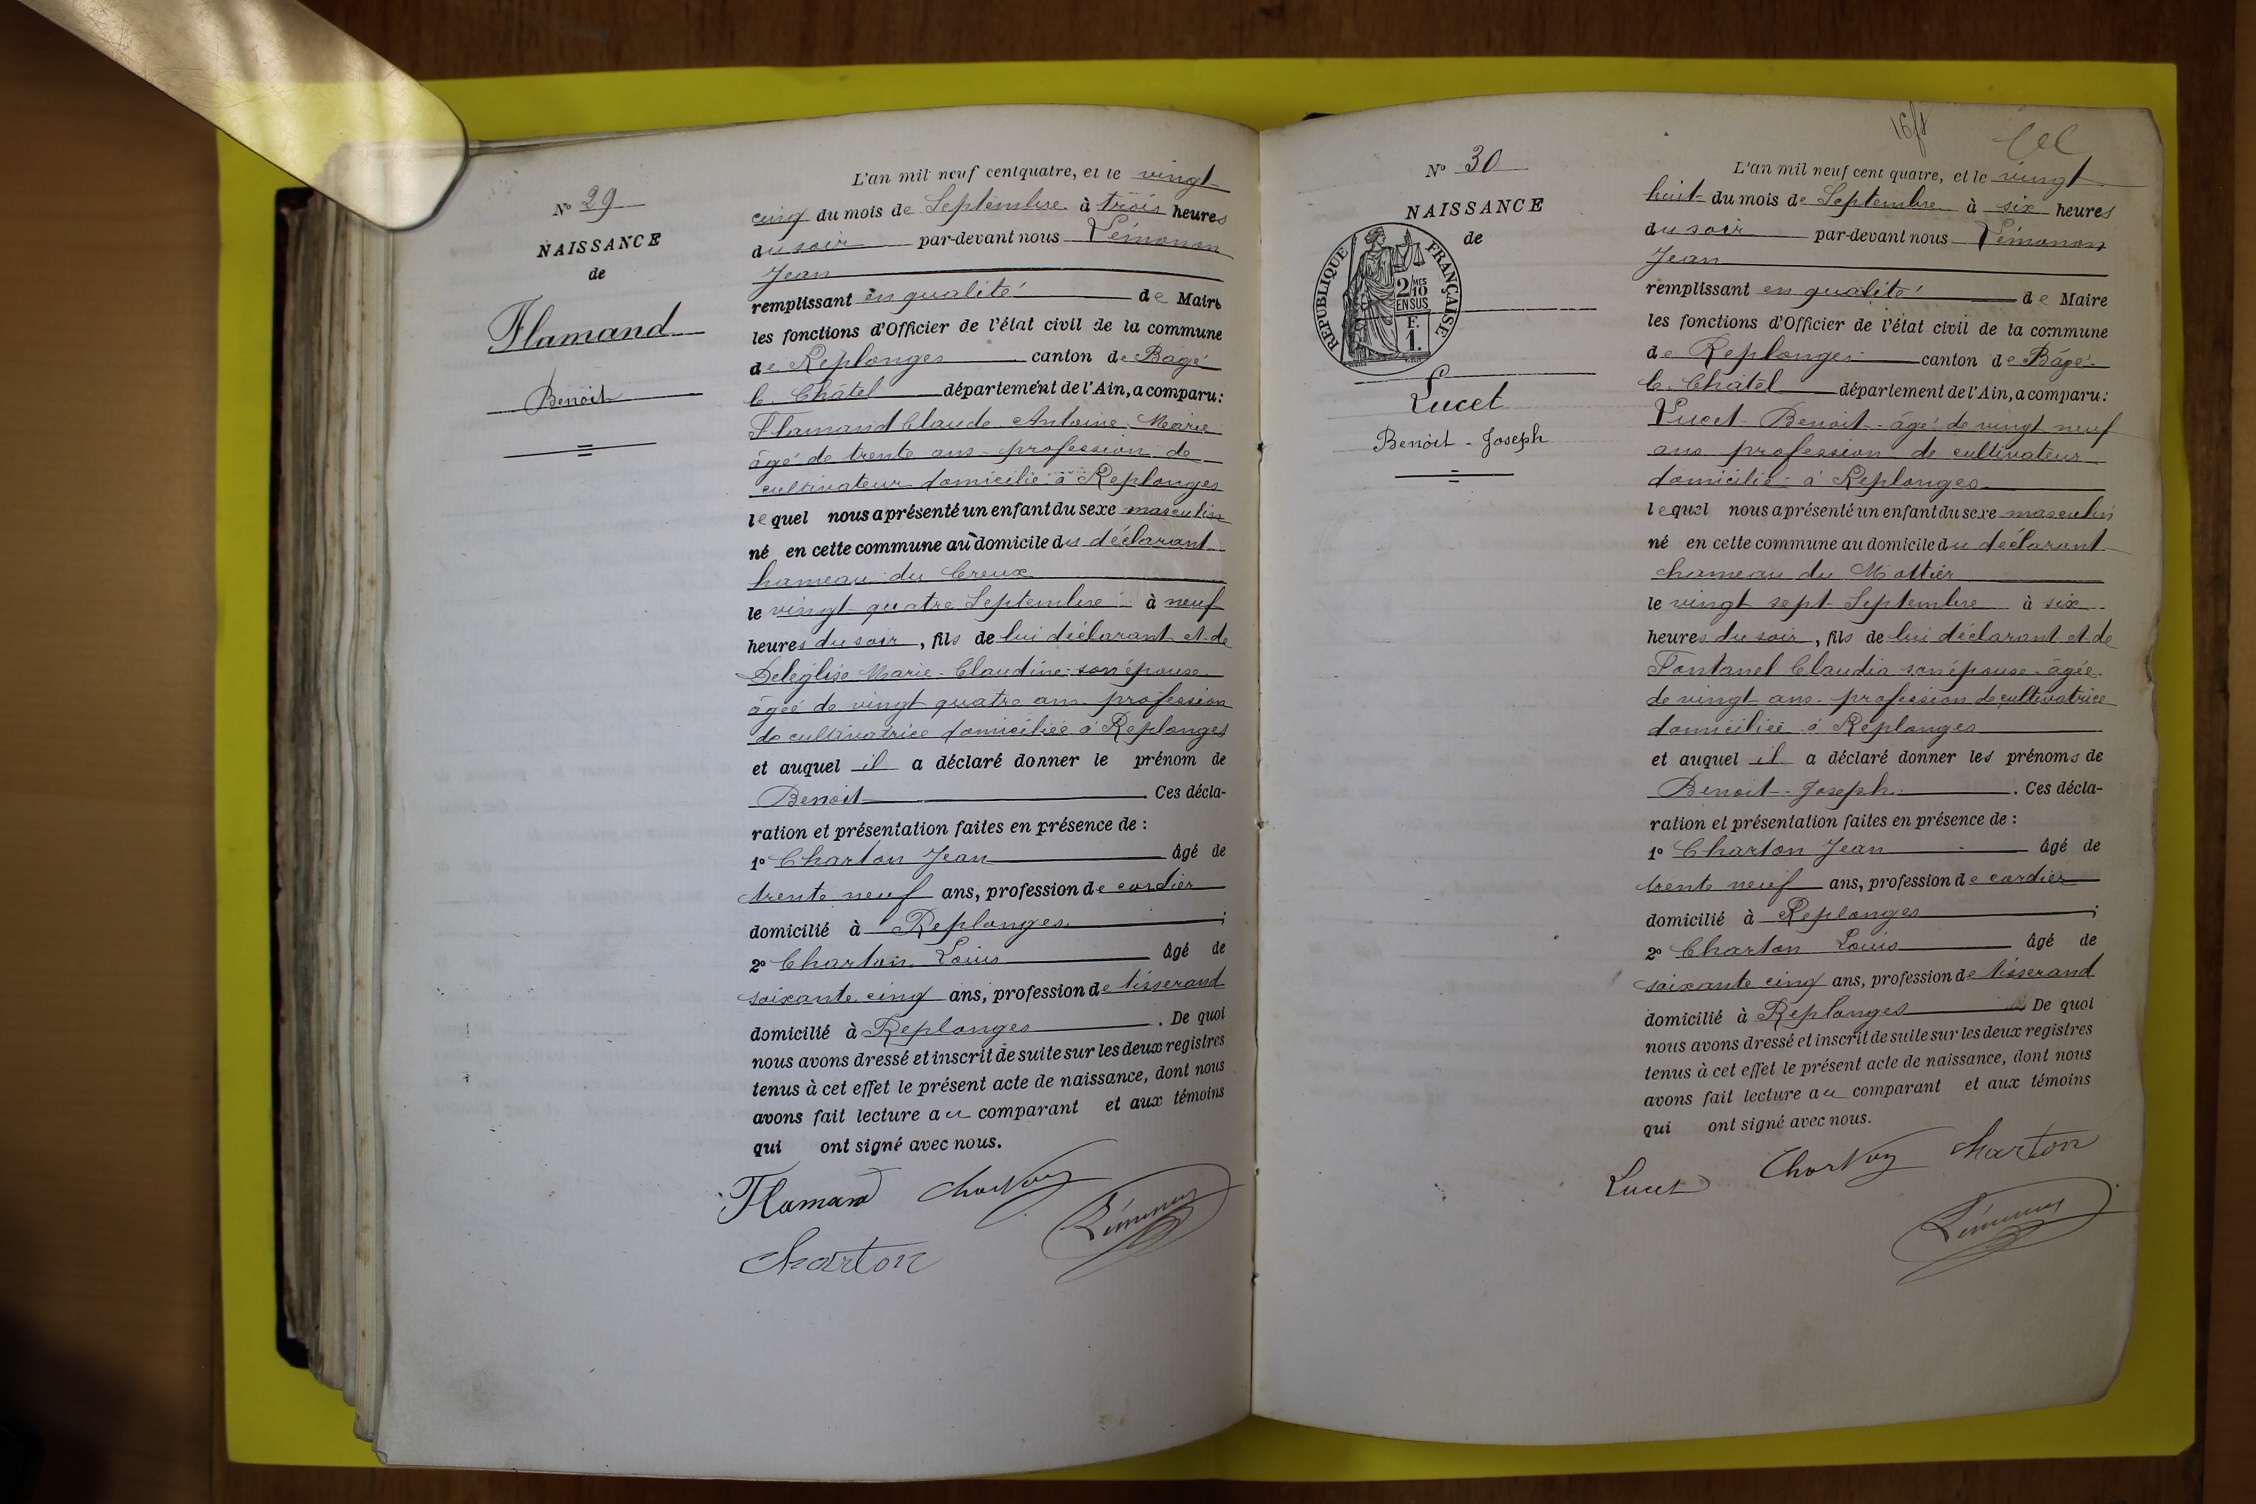 N° 29
NAISSANCE
de
Flamand
Benoit
L'an mil neuf cent quatre, et le vingt
cinq du mois de Septembre à trois heures
du soir par-devant nous Lémonon
Jean
remplissant en qualité de Maire
les fonctions d'Officier de l'état civil de la commune
de Replonges canton de Bagé
le Châtel département de l'Ain, a comparu :
Flamand Claude Antoine Marie
âgé de trente ans profession de
cultivateur domicilié à Replonges
lequel nous a présenté un enfant du sexe masculin
né en cette commune au domicile du déclarant
hameau du Creux
le vingt quatre Septembre à neuf
heures du soir, fils de lui déclarant et de
Deléglise Marie-Claudine son épouse
âgée de vingt quatre ans profession
de cultivatrice domiciliée à Replonges
et auquel il a déclaré donner le prénom de
Benoit. Ces décla-
ration et présentation faites en présence de :
1° Charton Jean âgé de
trente neuf ans, profession de cordier
domicilié à Replonges ;
2° Charton Louis âgé de
soixante cinq ans, profession de tisserand
domicilié à Replonges. De quoi
nous avons dressé et inscrit de suite sur les deux registres
tenus à cet effet le présent acte de naissance, dont nous
avons fait lecture au comparant et aux témoins
qui ont signé avec nous.
Flamand Charton
Lémonon
Charton
16/8
N° 30
NAISSANCE
de
RÉPUBLIQUE FRANÇAISE
2/10 MES
EN SUS
F.
1.
Lucet
Benoit-Joseph
L'an mil neuf cent quatre, et le vingt
huit du mois de Septembre à six heures
du soir par-devant nous Lémonon
Jean
remplissant en qualité de Maire
les fonctions d'Officier de l'état civil de la commune
de Replonges canton de Bagé
le Châtel département de l'Ain, a comparu :
Lucet Benoit âgé de vingt neuf
ans profession de cultivateur
domicilié à Replonges
lequel nous a présenté un enfant du sexe masculin
né en cette commune au domicile du déclarant
hameau du Mottier
le vingt sept Septembre à six
heures du soir, fils de lui déclarant et de
Fontanel Claudia son épouse âgée
de vingt ans profession de cultivatrice
domiciliée à Replonges
et auquel il a déclaré donner les prénoms de
Benoit-Joseph. Ces décla-
ration et présentation faites en présence de :
1° Charton Jean âgé de
trente neuf ans, profession de cordier
domicilié à Replonges ;
2° Charton Louis âgé de
soixante cinq ans, profession de tisserand
domicilié à Replonges. De quoi
nous avons dressé et inscrit de suite sur les deux registres
tenus à cet effet le présent acte de naissance, dont nous
avons fait lecture au comparant et aux témoins
qui ont signé avec nous.
Lucet Charton Charton
Lémonon